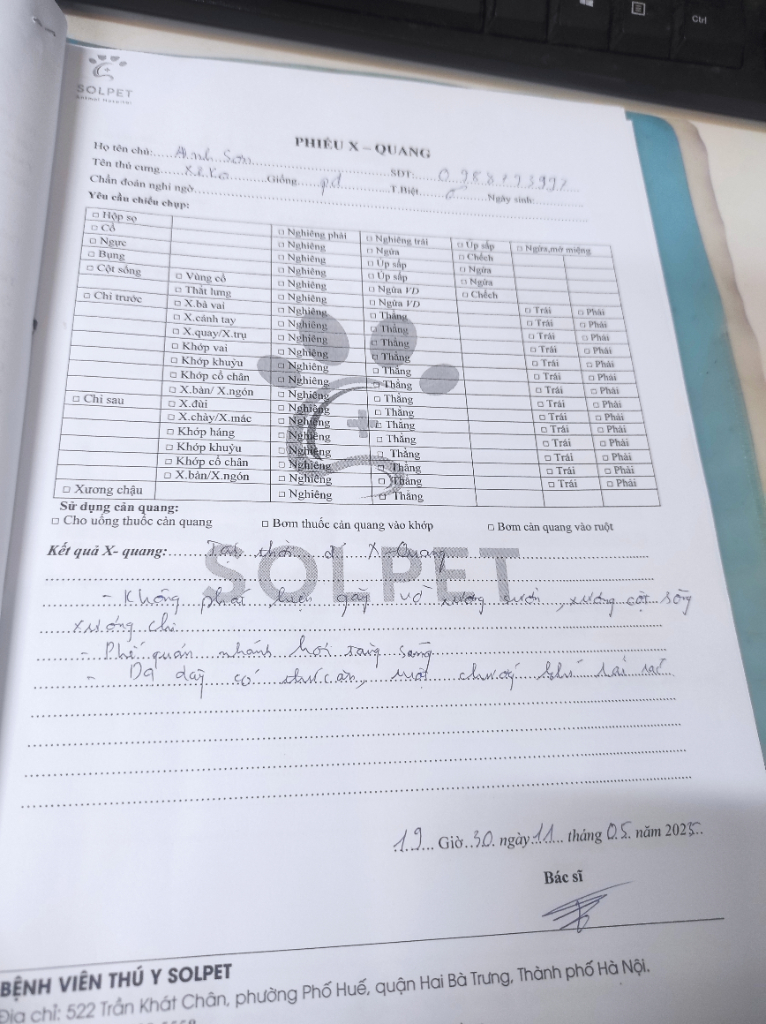 Ctrl
SOLPET
PHIẾU X – QUANG
Họ tên chủ: Anh Sơn SĐT:
Tên thú cưng: Giống: T.Biệt: Ngày sinh:
Chẩn đoán nghi ngờ:
Yêu cầu chiếu chụp:
□ Hộp sọ □ Nghiêng phải □ Nghiêng trái □ Úp sấp □ Ngửa, mở miệng
□ Cổ □ Nghiêng □ Ngửa □ Chếch
□ Ngực □ Nghiêng □ Úp sấp □ Ngửa
□ Bụng □ Nghiêng □ Úp sấp □ Ngửa
□ Cột sống □ Vùng cổ □ Nghiêng □ Ngửa VD □ Chếch
□ Thắt lưng □ Nghiêng □ Ngửa VD
□ Chi trước □ X.bả vai □ Nghiêng □ Thẳng □ Trái □ Phải
□ X.cánh tay □ Nghiêng □ Thẳng □ Trái □ Phải
□ X.quay/X.trụ □ Nghiêng □ Thẳng □ Trái □ Phải
□ Khớp vai □ Nghiêng □ Thẳng □ Trái □ Phải
□ Khớp khuỷu □ Nghiêng □ Thẳng □ Trái □ Phải
□ Khớp cổ chân □ Nghiêng □ Thẳng □ Trái □ Phải
□ X.bàn/ X.ngón □ Nghiêng □ Thẳng □ Trái □ Phải
□ Chi sau □ X.đùi □ Nghiêng □ Thẳng □ Trái □ Phải
□ X.chày/X.mác □ Nghiêng □ Thẳng □ Trái □ Phải
□ Khớp háng □ Nghiêng □ Thẳng □ Trái □ Phải
□ Khớp khuỷu □ Nghiêng □ Thẳng □ Trái □ Phải
□ Khớp cổ chân □ Nghiêng □ Thẳng □ Trái □ Phải
□ X.bàn/X.ngón □ Nghiêng □ Thẳng □ Trái □ Phải
□ Xương chậu □ Nghiêng □ Thẳng
Sử dụng cản quang:
□ Cho uống thuốc cản quang □ Bơm thuốc cản quang vào khớp □ Bơm cản quang vào ruột
Kết quả X- quang: Tại thời đ' X-Quang
SOLPET
- Không phát hiện gãy vỡ xương sườn, xương cột sống
xương chi
- Phế quản nhánh hơi tăng sáng
- Dạ dày có thức ăn, ruột chướng khí rải rác
19 Giờ 30 ngày 11 tháng 05 năm 2025
Bác sĩ
BỆNH VIỆN THÚ Y SOLPET
Địa chỉ: 522 Trần Khát Chân, phường Phố Huế, quận Hai Bà Trưng, Thành phố Hà Nội.